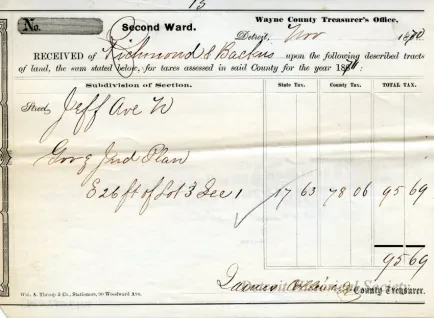 15
No. Second Ward. Wayne County Treasurer's Office,
Detroit, Nov 1870
RECEIVED OF Richmond & Backus upon the following described tracts
of land, the sum stated below, for taxes assessed in said County for the year 1870:
Subdivision of Section. State Tax. County Tax. TOTAL TAX.
Street, Jeff Ave W
Gov & Jud Plan
E 26 ft of Lot 3 Sec 1 17 63 78 06 95 69
95 69
County Treasurer.
Wm. A. Throop & Co., Stationers, 90 Woodward Ave.